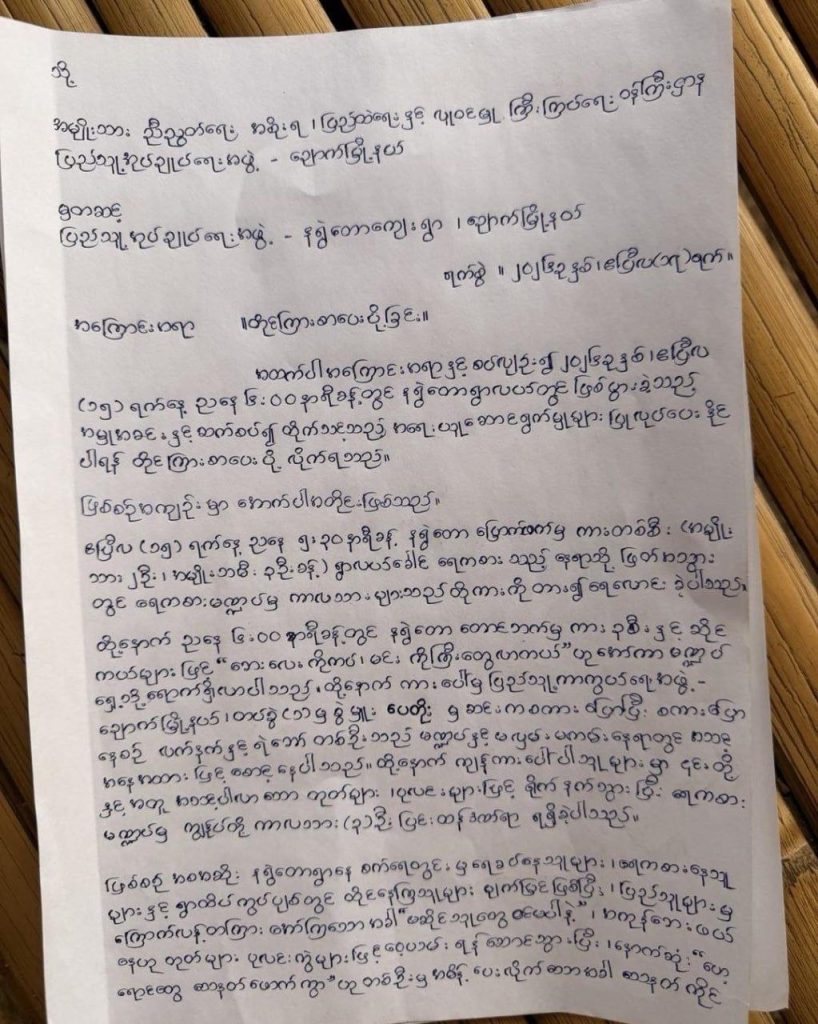 သို့
အမျိုးသား ညီညွတ်ရေး အစိုးရ ၊ ပြည်ထဲရေး နှင့် လူဝင်မှု ကြီးကြပ်ရေး ဝန်ကြီးဌာန
ပြည်သူ့အုပ်ချုပ်ရေးအဖွဲ့ - ချောက်မြို့နယ်
မှတဆင့်
ပြည်သူ့အုပ်ချုပ်ရေးအဖွဲ့ - နရွဲတောကျေးရွာ ၊ ချောက်မြို့နယ်
ရက်စွဲ ။ ၂၀၂၆ခုနှစ် ၊ ဧပြီလ(၁၇)ရက်။
အကြောင်းအရာ ။တိုင်ကြားစာပေးပို့ခြင်း။
အထက်ပါအကြောင်းအရာနှင့် စပ်လျဉ်း၍ ၂၀၂၆ခုနှစ် ၊ ဧပြီလ
(၁၅) ရက်နေ့ ညနေ ၆:၀၀ နာရီခန့်တွင် နရွဲတောရွာလယ်တွင် ဖြစ်ပွားခဲ့သည့်
အမှုအခင်းနှင့် ဆက်စပ်၍ ထိုက်သင့်သည့် အရေးယူဆောင်ရွက်မှုများ ပြုလုပ်ပေး နိုင်
ပါရန် တိုင်ကြားစာပေးပို့ လိုက်ရသည်။
ဖြစ်စဉ်အကျဉ်းမှာ အောက်ပါအတိုင်းဖြစ်သည်။
ဧပြီလ (၁၅) ရက်နေ့ ညနေ ၅:၃၀နာရီခန့် နရွဲတော မြောက်ဖက်မှ ကားတစ်စီး (အမျိုး
သား ၂ဦး ၊ အမျိုးသမီး ၃ဦးခန့်) ရွာလယ်ခေါင် ရေကစား သည့် နေရာသို့ ဖြတ်အသွား
တွင် ရေကစားမဏ္ဍပ်မှ ကာလသားများသည် ထိုကားကို တား၍ ရေလောင်း ခဲ့ပါသည်။
ထို့နောက် ညနေ ၆:၀၀ နာရီခန့်တွင် နရွဲတော တောင်ဘက်မှ ကား ၃စီးနှင့် ဆိုင်
ကယ်များဖြင့် "ဘေးလေးကိုကပ် ၊ မင်း ကိုကြီးတွေလာတယ်" ဟု အော်ကာ မဏ္ဍပ်
ရှေ့သို့ ရောက်ရှိလာပါသည်။ ထို့နောက် ကားပေါ်မှ ပြည်သူ့ကာကွယ်ရေးအဖွဲ့ -
ချောက်မြို့နယ် ၊ တပ်ခွဲ(၁)မှ ခွဲမှူး ပေတိုး မှ ဆင်းကာစကားပြောပြီး စကားပြော
နေစဉ် လက်နက်နှင့် ရဲဘော် တစ်ဦးသည် မဏ္ဍပ်နှင့် မလှမ်း မကမ်းနေရာတွင် အသင့်
အနေအထားဖြင့် စောင့်နေပါသည်။ ထို့နောက် ကျန်ကားပေါ်ပါသူများမှာ ၎င်းတို့
နှင့်အတူ အသင့်ပါလာသော တုတ်များ ၊ ပုလင်းများဖြင့် ရိုက် နှက်သွားပြီး ရေကစား
မဏ္ဍပ်မှ ကျွန်ုပ်တို့ ကာလသား (၃)ဦး ပြင်းထန်ဒဏ်ရာ ရရှိခဲ့ပါသည်။
ဖြစ်စဉ် အစအဆုံး နရွဲတောရွာနေ စက်ရေတွင်းမှ ရေခပ်နေသူများ ၊ ရေကစားနေသူ
များနှင့် ရွာထိပ်ကွပ်ပျစ်တွင် ထိုင်နေကြသူများ မျက်မြင်ဖြစ်ပြီး ၊ ပြည်သူများမှ
ကြောက်လန့်တကြား အော်ကြသောအခါ "မဆိုင်သူတွေ ဝင်မပါနဲ့" ၊ အကုန်ဘေးဖယ်
နေဟု တုတ်များ ပုလင်းကွဲများဖြင့် ဝေ့ယမ်း ရန် ဆောင်သွားပြီး ၊ နောက်ဆုံး "ဟေ့
ရောင်တွေ သေနတ်ဖောက်ကွာ" ဟု တစ်ဦးမှ အမိန့် ပေးလိုက်သောအခါ သေနတ်ကိုင်